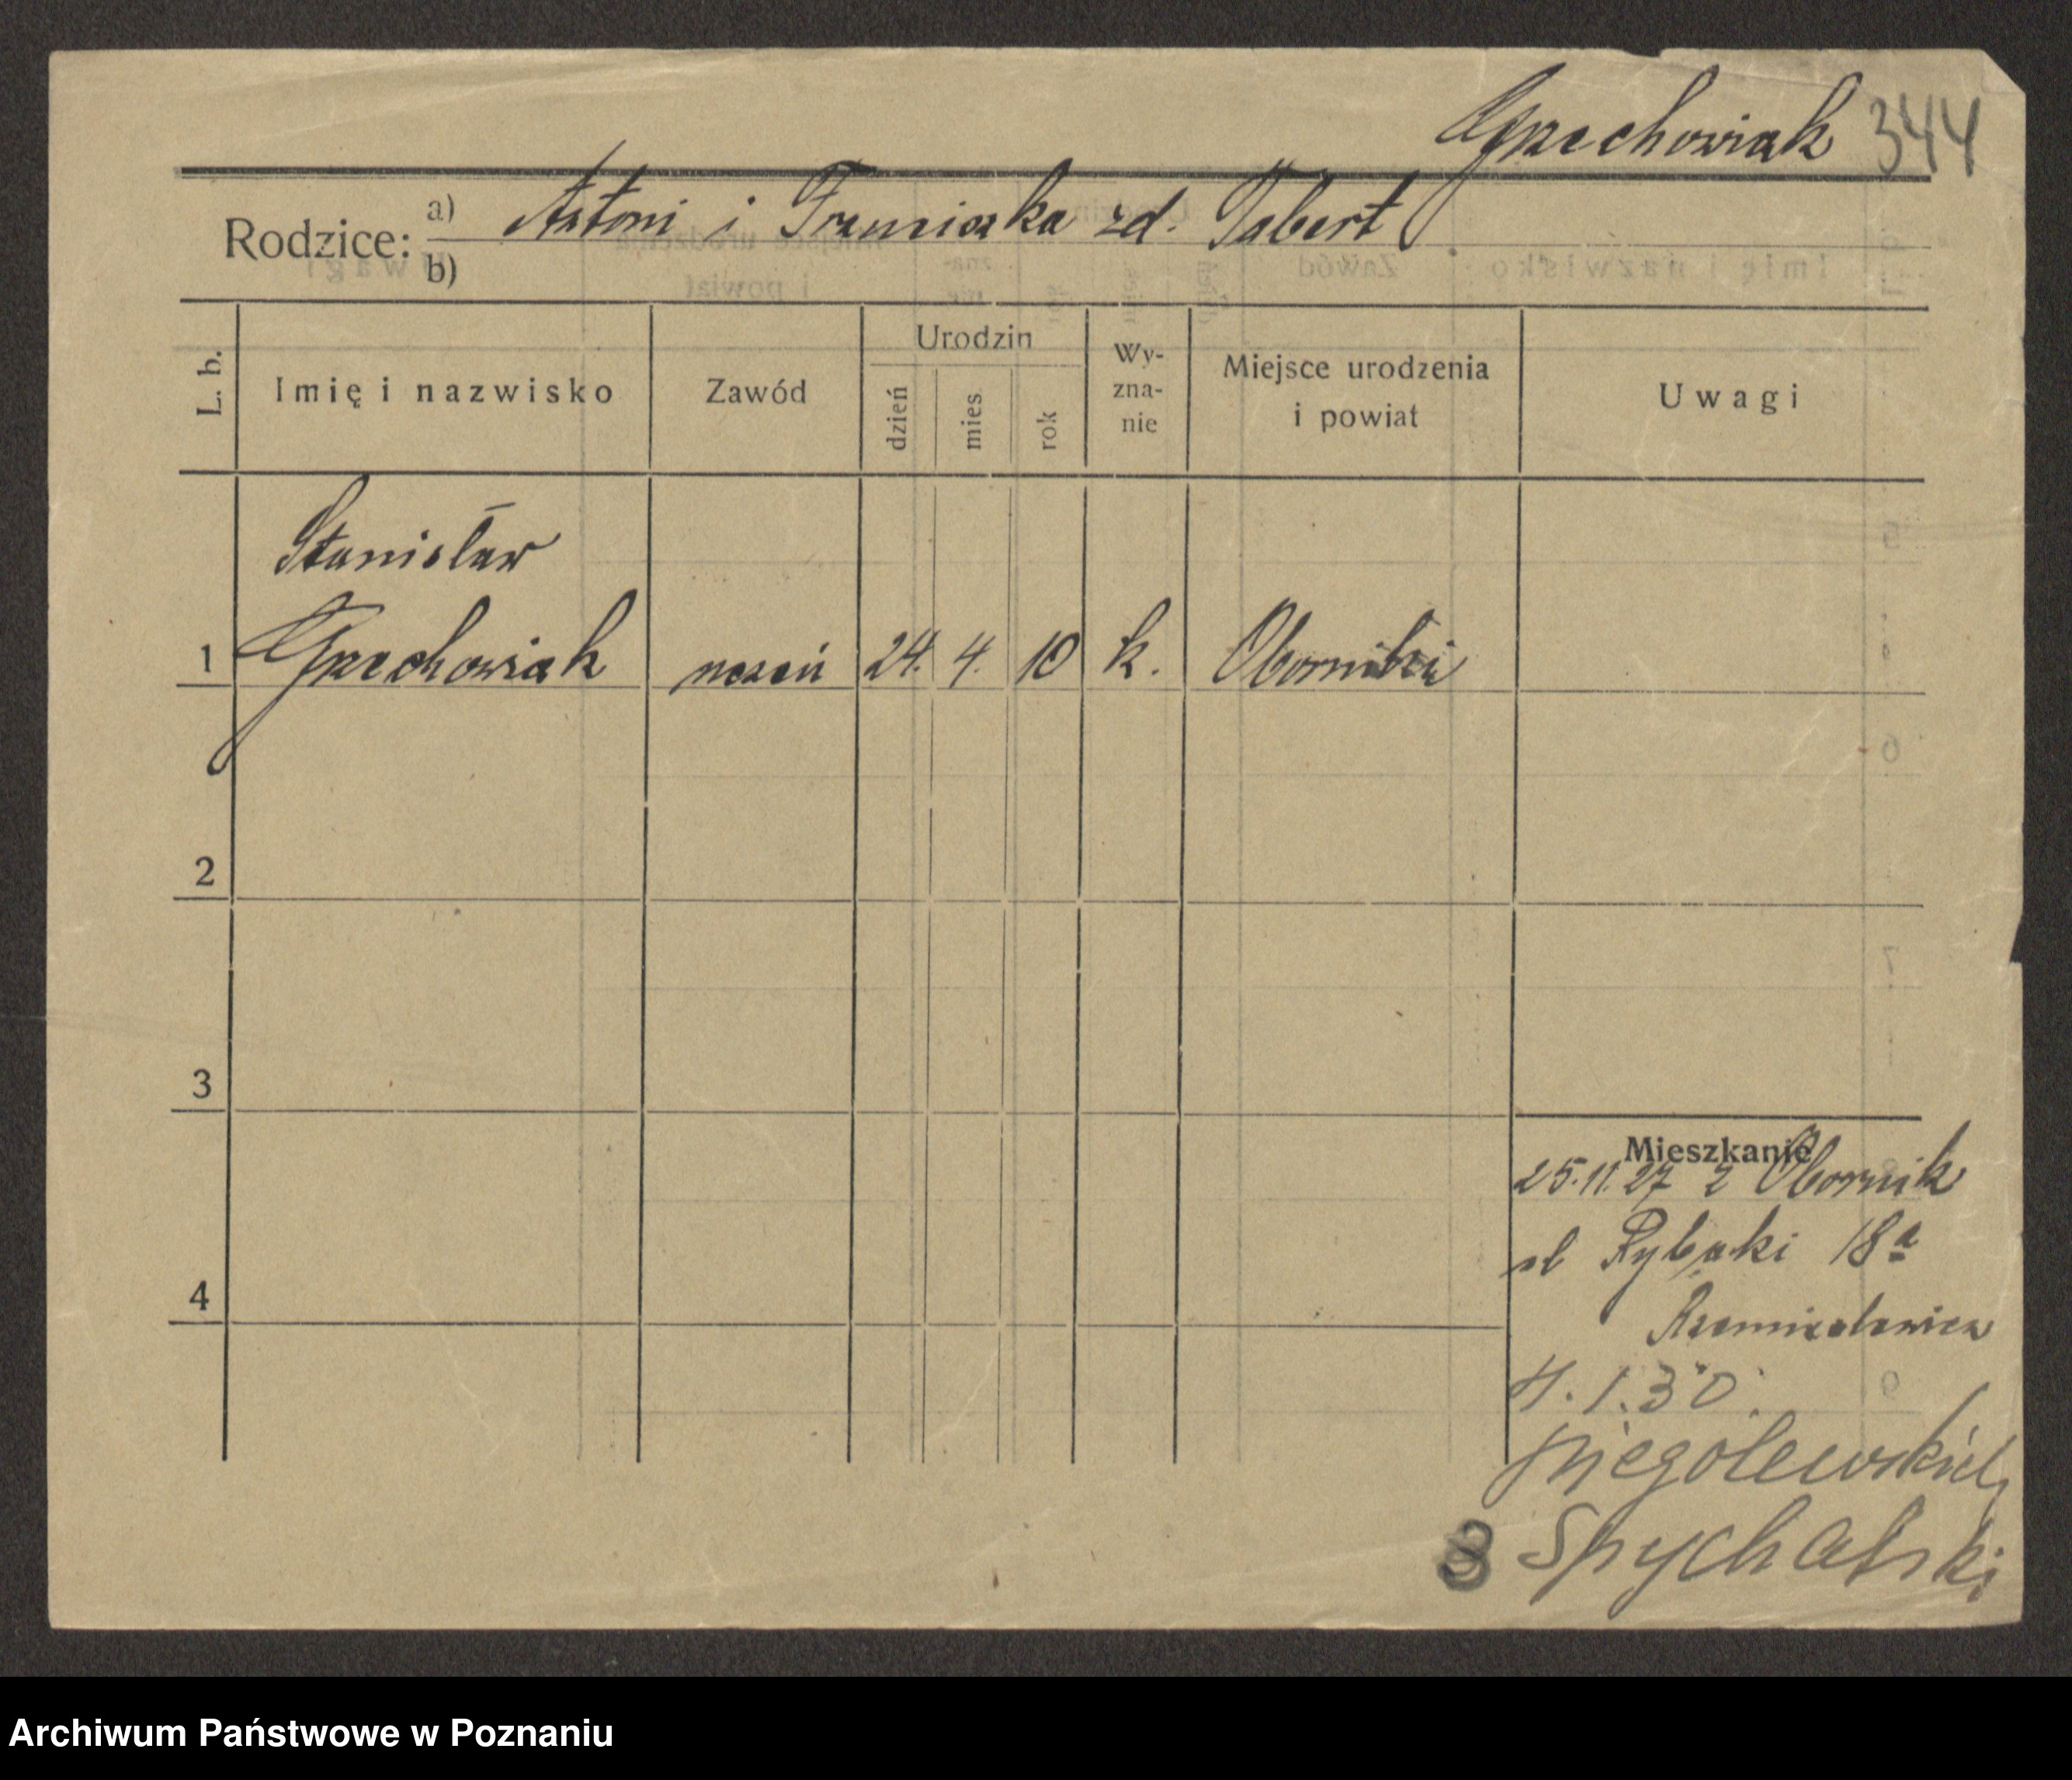 Grzechowiak 344
Rodzice: a) Antoni i Franciszka zd. Tabert
b)
L. b. Imię i nazwisko Zawód Urodzin dzień mies. rok Wy-zna-nie Miejsce urodzenia i powiat Uwagi
Stanisław
1 Grzechowiak uczeń 24. 4. 10 k. Oborniki
2
3
4
Mieszkanie
25.11.27 z Obornik
ul Rybaki 18a
4.1.30.
Niegolewskich
8 Spychalski
Archiwum Państwowe w Poznaniu